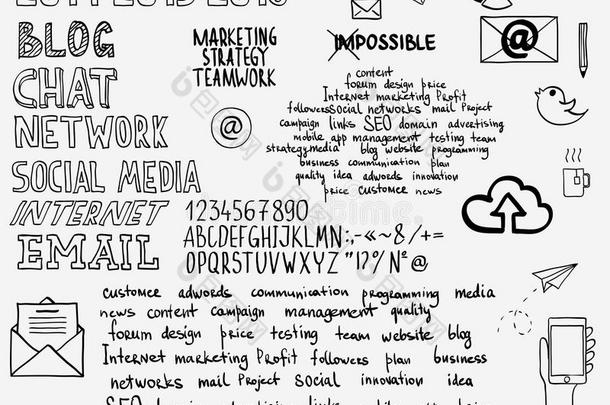 2014 2015 2016
BLOG
CHAT
NETWORK
SOCIAL MEDIA
INTERNET
EMAIL
MARKETING
STRATEGY
TEAMWORK
IMPOSSIBLE
@
@
content
forum design price
Internet marketing Profit
followers social networks mail Project
campaign links SEO domain advertising
mobile app management testing team
strategy media blog website programming
business communication plan
quality idea adwords innovation
price customer news
1234567890
ABCDEFGHIJKLMN:;-«~8/+=
OPQRSTUVWXYZ "!?/№@
customer adwords communication programming media
news content campaign management quality
forum design price testing team website blog
Internet marketing Profit followers plan business
networks mail Project social innovation idea
SEO domain advertising links